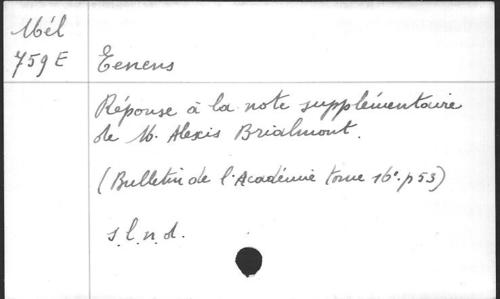 Mél
759 E
Eenens
Réponse à la note supplémentaire
de M. Alexis Brialmont.
(Bulletin de l'Académie tome 16e. p 53)
s.l.n.d.